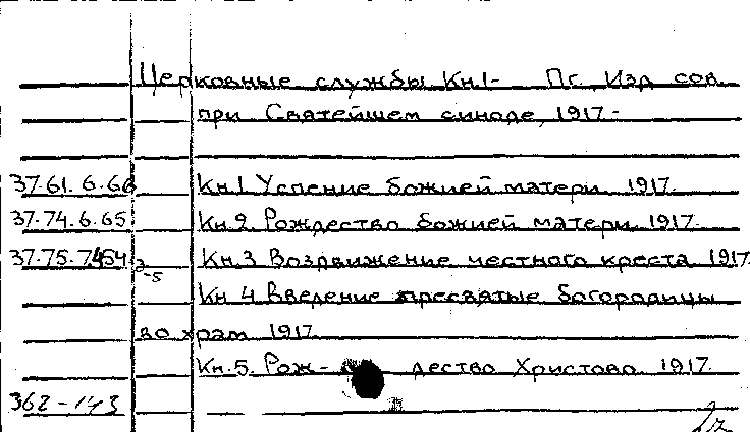 Церковные службы Кн.1- Пг. Изд. сов.
при Святейшем синоде, 1917-
37.61.6.66 Кн.1 Успение божией матери. 1917.
37.74.6.65 Кн.2. Рождество божией матери. 1917.
37.75.7.454 Кн.3 Воздвижение честного креста 1917
Кн 4 Введение пресвятые богородицы
во храм 1917.
Кн.5. Рож- дество Христово. 1917.
362-143